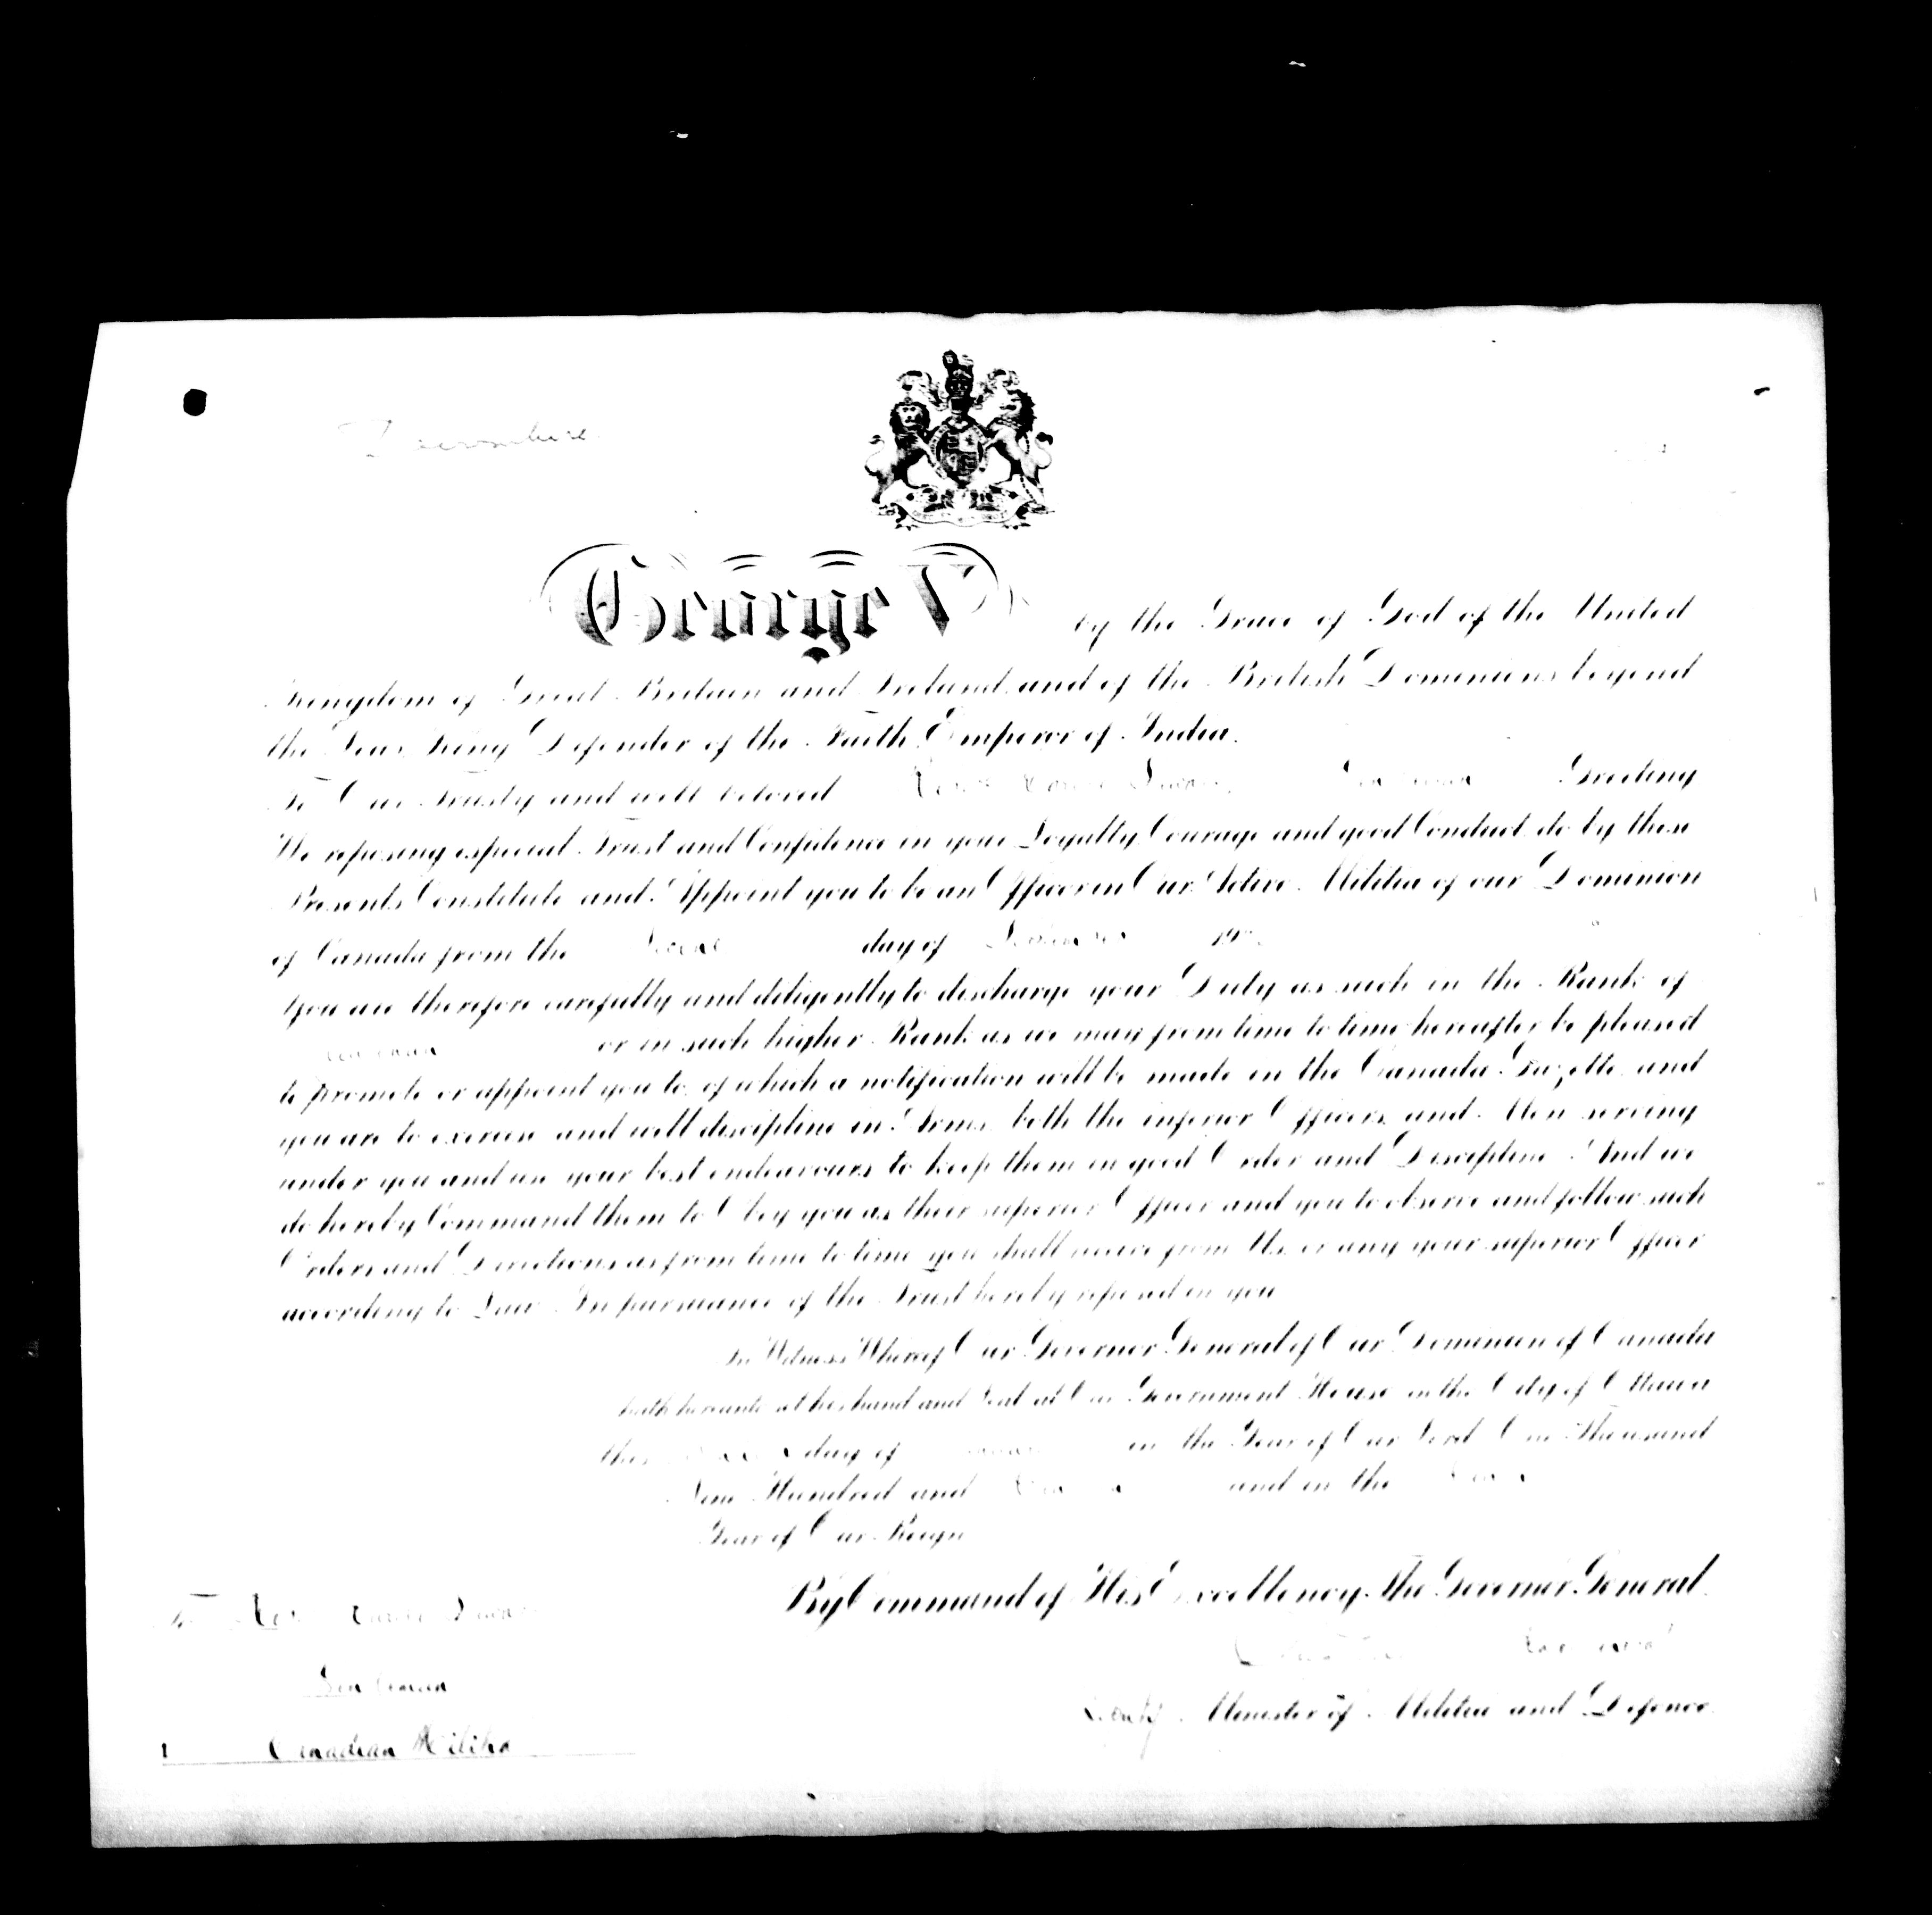 Devonshire
George V by the Grace of God of the United
Kingdom of Great Britain and Ireland and of the British Dominions beyond
the Seas King Defender of the Faith Emperor of India.
To Our Trusty and well beloved Greeting
We reposing especial Trust and Confidence in your Loyalty Courage and good Conduct do by these
Presents Constitute and Appoint you to be an Officer in Our Active Militia of our Dominion
of Canada from the day of 19
You are therefore carefully and diligently to discharge your Duty as such in the Rank of
or in such higher Rank as we may from time to time hereafter be pleased
to promote or appoint you to of which a notification will be made in the Canada Gazette and
you are to exercise and well discipline in Arms both the inferior Officers and Men serving
under you and use your best endeavours to keep them in good Order and Discipline. And we
do hereby Command them to Obey you as their superior Officer and you to observe and follow such
Orders and Directions as from time to time you shall receive from Us or any your superior Officer
according to Law In pursuance of the Trust hereby reposed in you
In Witness Whereof Our Governor General of Our Dominion of Canada
hath hereunto set his hand and Seal at Our Government House in the City of Ottawa
this day of in the Year of Our Lord One Thousand
Nine Hundred and and in the
Year of Our Reign
By Command of His Excellency The Governor General.
Deputy Minister of Militia and Defence.
Canadian Militia